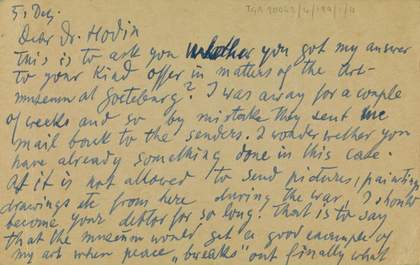 5. Dez.
TGA 20062/4/194/1/4
Dear Dr. Hodin
This is to ask you whether you got my answer
to your kind offer in matters of the Art-
museum at Goeteburg? I was away for a couple
of weeks and so by mistake they sent me
mail back to the senders. I wonder wether you
have already something done in this case.
As it is not allowed to send pictures, paintings
drawings etc from here during the war, I should
become your debtor for so long. That is to say
that the museum would get a good example of
my art when peace „breaks" out finally what